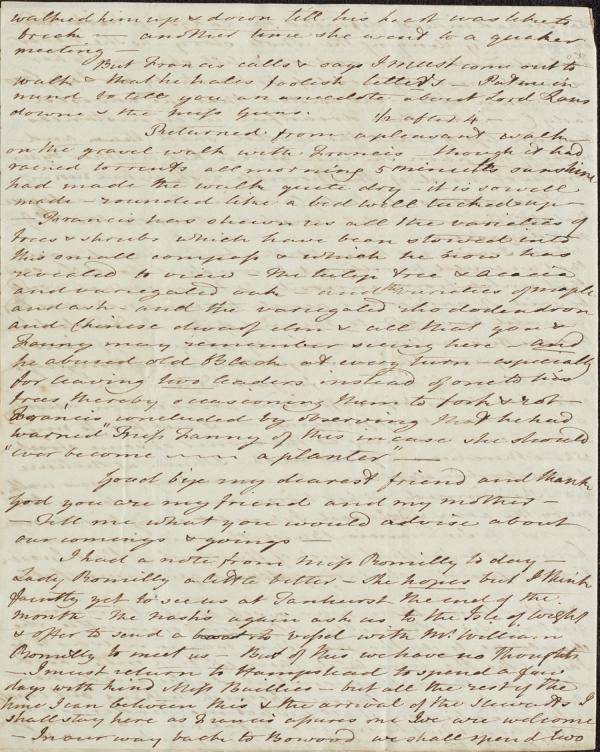 walked him up & down till his heart was like to
break — another time she went to a quaker
meeting —
But Francis calls & says I must come out to
walk & that he hates foolish letters — Put me in
mind to tell you an anecdote about Lord Lans
downe & the Miss Guns. 1/2 after 4 —
Returned from a pleasant walk
on the gravel walk with Francis — though it had
rained torrents all morning 5 minutes sunshine
had made the walk quite dry — it is so well
made — rounded like a bed well tucked up
— Francis has shewn us all the varieties of
trees & shrubs which have been stowed into
this small compass & which he now has
revealed to view — The tulip tree & acacia
and variegated oak — and the varieties of maple
and ash — and the variegated rhododendron
and Chinese dwarf elm & all that you &
Fanny may remember seeing here — and
he abused old Black at every turn — especially
for leaving two leaders instead of one to his
trees, thereby occasioning them to fork & rot
Francis concluded by observing that he had
warned "Miss Fanny of this in case she should
"ever become —— a planter" —
Good bye my dearest friend and thank
God you are my friend and my mother —
— Tell me what you would advise about
our comings & goings —
I had a note from Miss Romilly to day
Lady Romilly a little better — She hopes but I think
faintly yet to see us at Tanhurst the end of the
month — The Nash's again ask us to the Isle of Wight
& offer to send a vessel with Mr. William
Romilly to meet us — But of this we have no thoughts
— I must return to Hampstead to spend a few
days with kind Miss Baillies — but all the rest of the
time I can between this & the arrival of the Stewarts I
shall stay here as Francis assures me we are welcome
— In our way back to Bowood we shall spend two